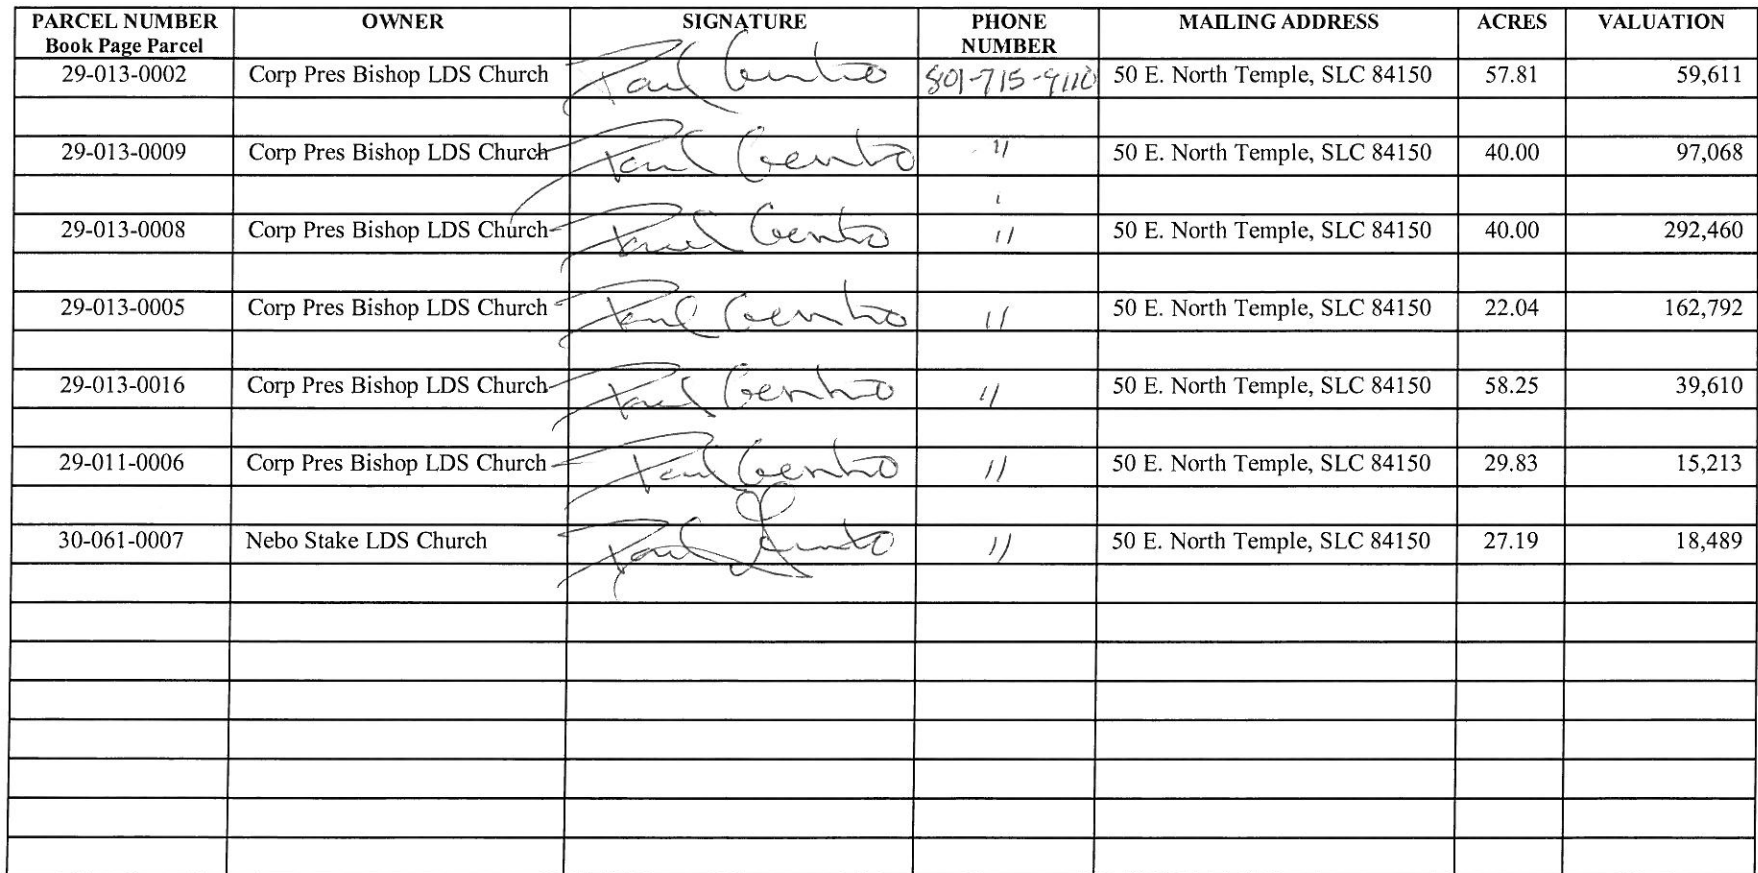 PARCEL NUMBER OWNER SIGNATURE PHONE MAILING ADDRESS ACRES VALUATION
Book Page Parcel NUMBER
29-013-0002 Corp Pres Bishop LDS Church Paul 801-715-9110 50 E. North Temple, SLC 84150 57.81 59,611
29-013-0009 Corp Pres Bishop LDS Church Paul " 50 E. North Temple, SLC 84150 40.00 97,068
29-013-0008 Corp Pres Bishop LDS Church Paul " 50 E. North Temple, SLC 84150 40.00 292,460
29-013-0005 Corp Pres Bishop LDS Church Paul " 50 E. North Temple, SLC 84150 22.04 162,792
29-013-0016 Corp Pres Bishop LDS Church Paul " 50 E. North Temple, SLC 84150 58.25 39,610
29-011-0006 Corp Pres Bishop LDS Church Paul " 50 E. North Temple, SLC 84150 29.83 15,213
30-061-0007 Nebo Stake LDS Church Paul " 50 E. North Temple, SLC 84150 27.19 18,489